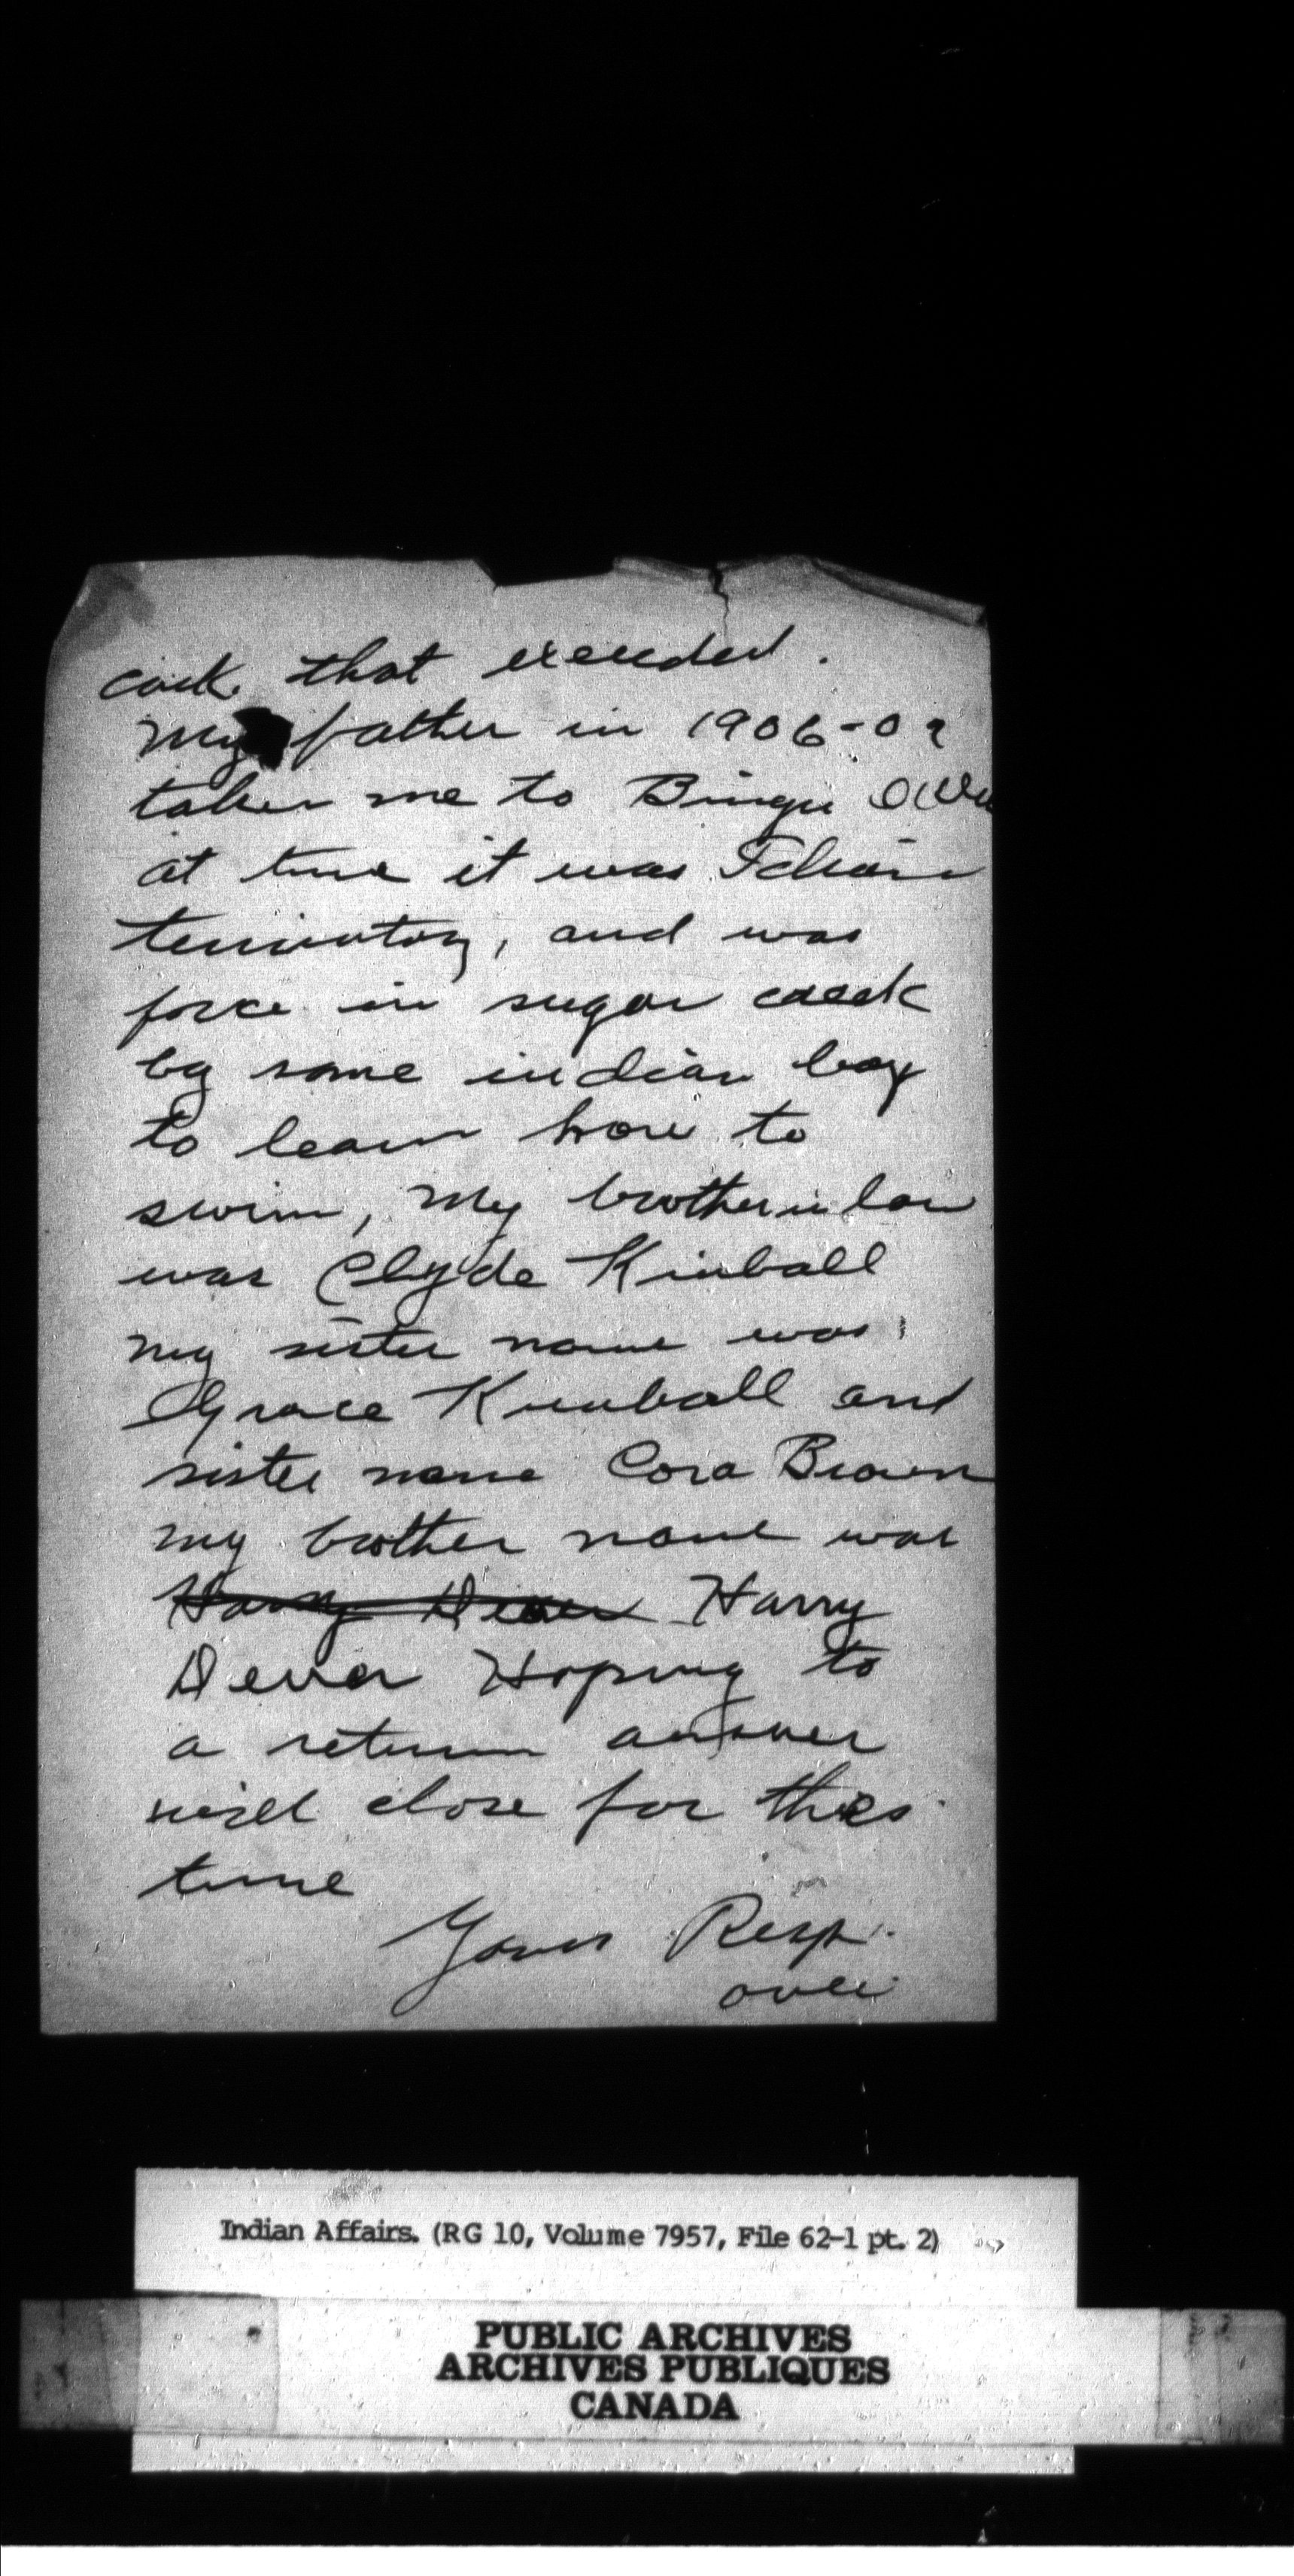 that
My father in 1906-0
taken me to Binger
at time it was
territory, and was
force in sugar creek
by some indian boy
to learn how to
swim, My brother in law
was Clyde Kimball
my sister name was
Grace Kimball and
sister name Cora Brown
my brother name was
Harry Dever Harry
Dever Hoping to
a return answer
will close for this
time
Yours Resp.
over
Indian Affairs. (RG 10, Volume 7957, File 62-1 pt. 2)
PUBLIC ARCHIVES
ARCHIVES PUBLIQUES
CANADA